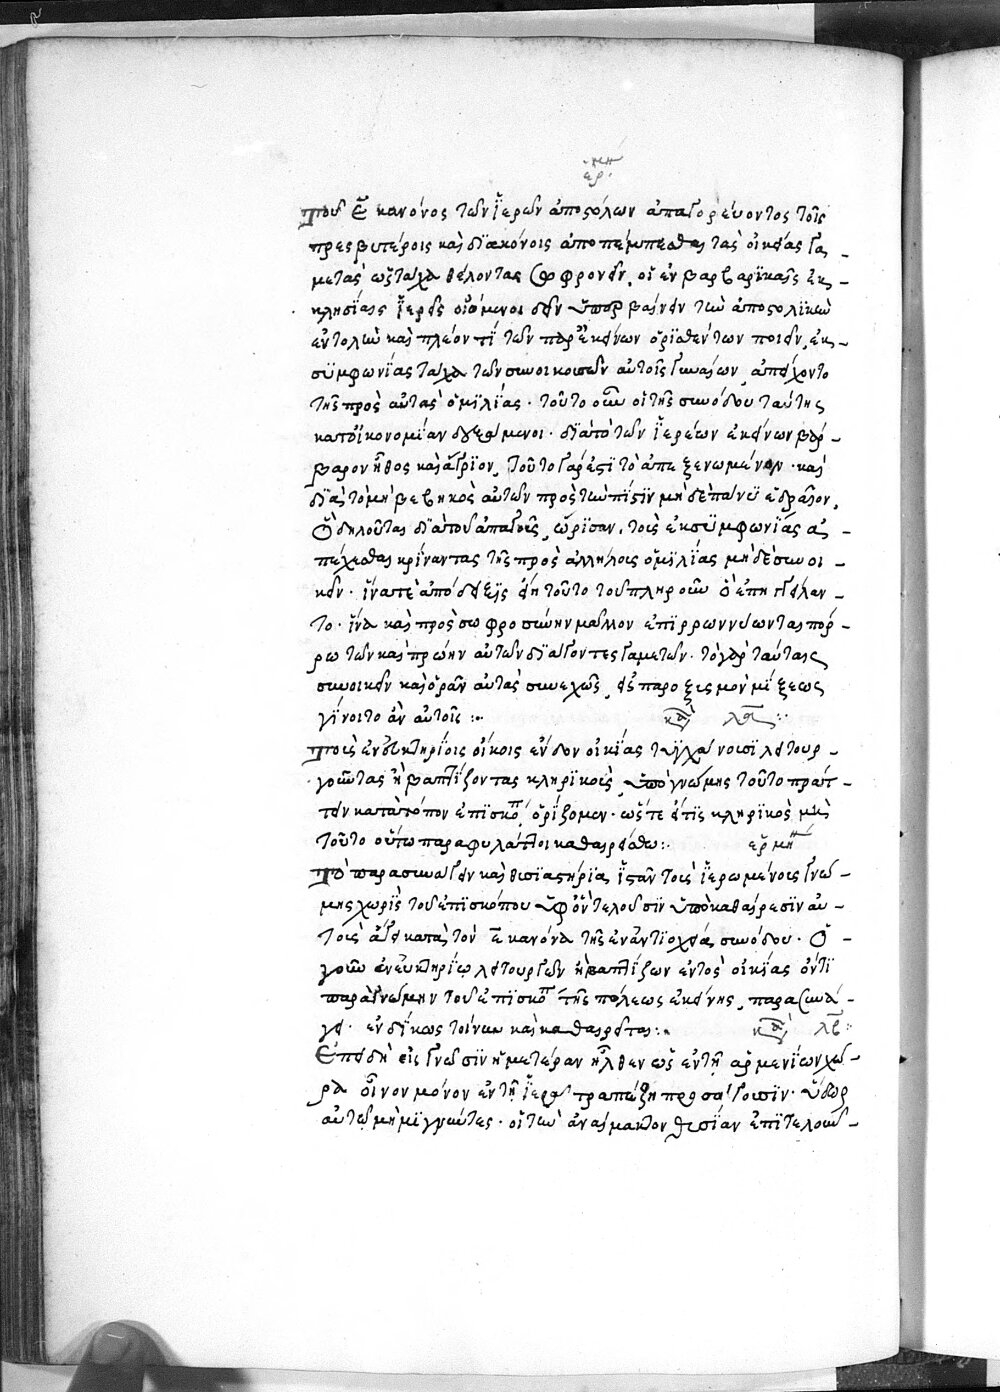 ἑρμη
Τοῦ ε̄ κανόνος τῶν ἱερῶν ἀποστόλων ἀπαγορεύοντος τοῖς
πρεσβυτέροις καὶ διακόνοις ἀποπέμπεσθαι τὰς οἰκείας γα-
μετὰς ὡς τάχα θέλοντας σωφρονεῖν, οἱ ἐν βαρβαρικαῖς ἐκ-
κλησίαις ἱερεῖς οἰόμενοι δεῖν ὑπερβαίνειν τὴν ἀποστολικὴν
ἐντολὴν καὶ πλέον τί τῶν παρ' ἐκείνων ὁρισθέντων ποιεῖν, ἐκ-
συμφωνίας τάχα τῶν συνοικουσῶν αὐτοῖς γυναίων, ἀπείχοντο
τῆς πρὸς αὐτὰς ὁμιλίας. τοῦτο οὖν οἱ τῆς συνόδου ταύτης
κατ' οἰκονομίαν δεξάμενοι. διὰ τὸ τῶν ἱερέων ἐκείνων βάρ-
βαρον ἦθος καὶ ἄγριον, τοῦτο γάρ ἐστι τὸ ἀπεξενωμένον. καὶ
διὰ τὸ μὴ βεβηκὸς αὐτῶν πρὸς τὴν πίστιν μηδὲ πάνυ ἑδραῖον,
ὃ δηλοῦται διὰ τοῦ ἀπαγοῦς, ὥρισαν, τοὺς ἐκ συμφωνίας ἀ-
πέχεσθαι κρίναντας τῆς πρὸς ἀλλήλους ὁμιλίας μηδὲ συνοι-
κεῖν. ἵνα τε ἀπόδειξις εἴη τοῦτο τοῦ πληροῦν ὃ ἐπηγγείλαν-
το. ἵνα καὶ πρὸς σωφροσύνην μᾶλλον ἐπιρρωννύωνται πόρ-
ρω τῶν καὶ πρώην αὐτῶν διάγοντες γαμετῶν. τὸ γὰρ ταύταις
συνοικεῖν καὶ ὁρᾶν αὐτὰς συνεχῶς, εἰς παροξυσμὸν μίξεως
γένοιτο ἂν αὐτοῖς :· κα λα :
Τοὺς ἐν εὐκτηρίοις οἴκοις ἔνδον οἰκίας τυγχάνουσι λειτουρ-
γοῦντας ἢ βαπτίζοντας κληρικοὺς, ὑπὸ γνώμης τοῦτο πράτ-
τειν κατὰ τόπον ἐπισκό, ὁρίζομεν. ὥστε εἴ τις κληρικὸς μὴ
τοῦτο οὕτω παραφυλάττοι καθαιρείσθω :· ἑρμη
Τὸ παρασυνάγειν καὶ θυσιαστήρια ἱστᾶν τοὺς ἱερωμένους γνώ-
μης χωρὶς τοῦ ἐπισκόπου ὑφ' ὃν τελοῦσιν ὑπὸ καθαίρεσιν αὐ-
τοὺς ἄγει κατὰ τὸν ε̄ κανόνα τῆς ἐν ἀντιοχείᾳ συνόδου. ὁ
γοῦν ἐν εὐκτηρίῳ λειτουργῶν ἢ βαπτίζων ἐντὸς οἰκίας ὄντι
παρὰ γνώμην τοῦ ἐπισκό τῆς πόλεως ἐκείνης, παρασυνά-
γει. ἐνδίκως τοίνυν καὶ καθαιρεῖται :· κα λβ :
Ἐπειδὴ εἰς γνῶσιν ἡμετέραν ἦλθεν ὡς ἐν τῇ ἀρμενίων χώ-
ρᾳ οἶνον μόνον ἐν τῇ ἱερᾷ τραπέζῃ προσάγουσιν. ὕδωρ
αὐτῷ μὴ μιγνύντες. οἱ τὴν ἀναίμακτον θυσίαν ἐπιτελοῦν-